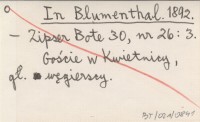 In Blumenthal. 1892.
- Zipser Bote 30, nr 26 : 3.
Goście w Kwietnicy,
gł. węgierscy.